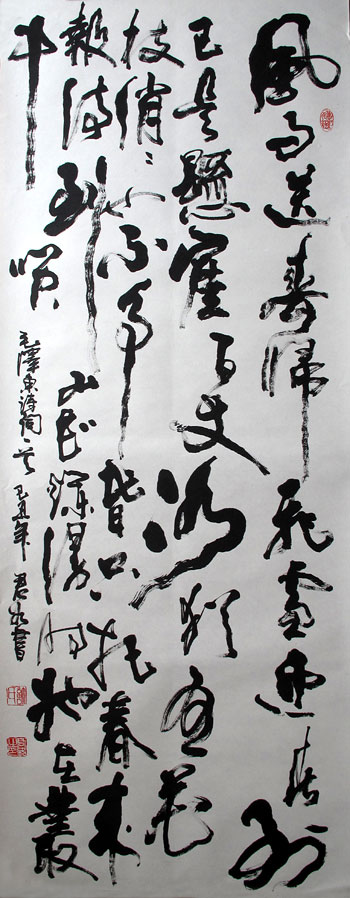 風雨送春歸飛雪迎春到
已是懸崖百丈冰猶有花
枝俏々也不争春只把春来
報待到山花爛漫時她在叢
中笑
毛澤東詩詞 己丑年君書